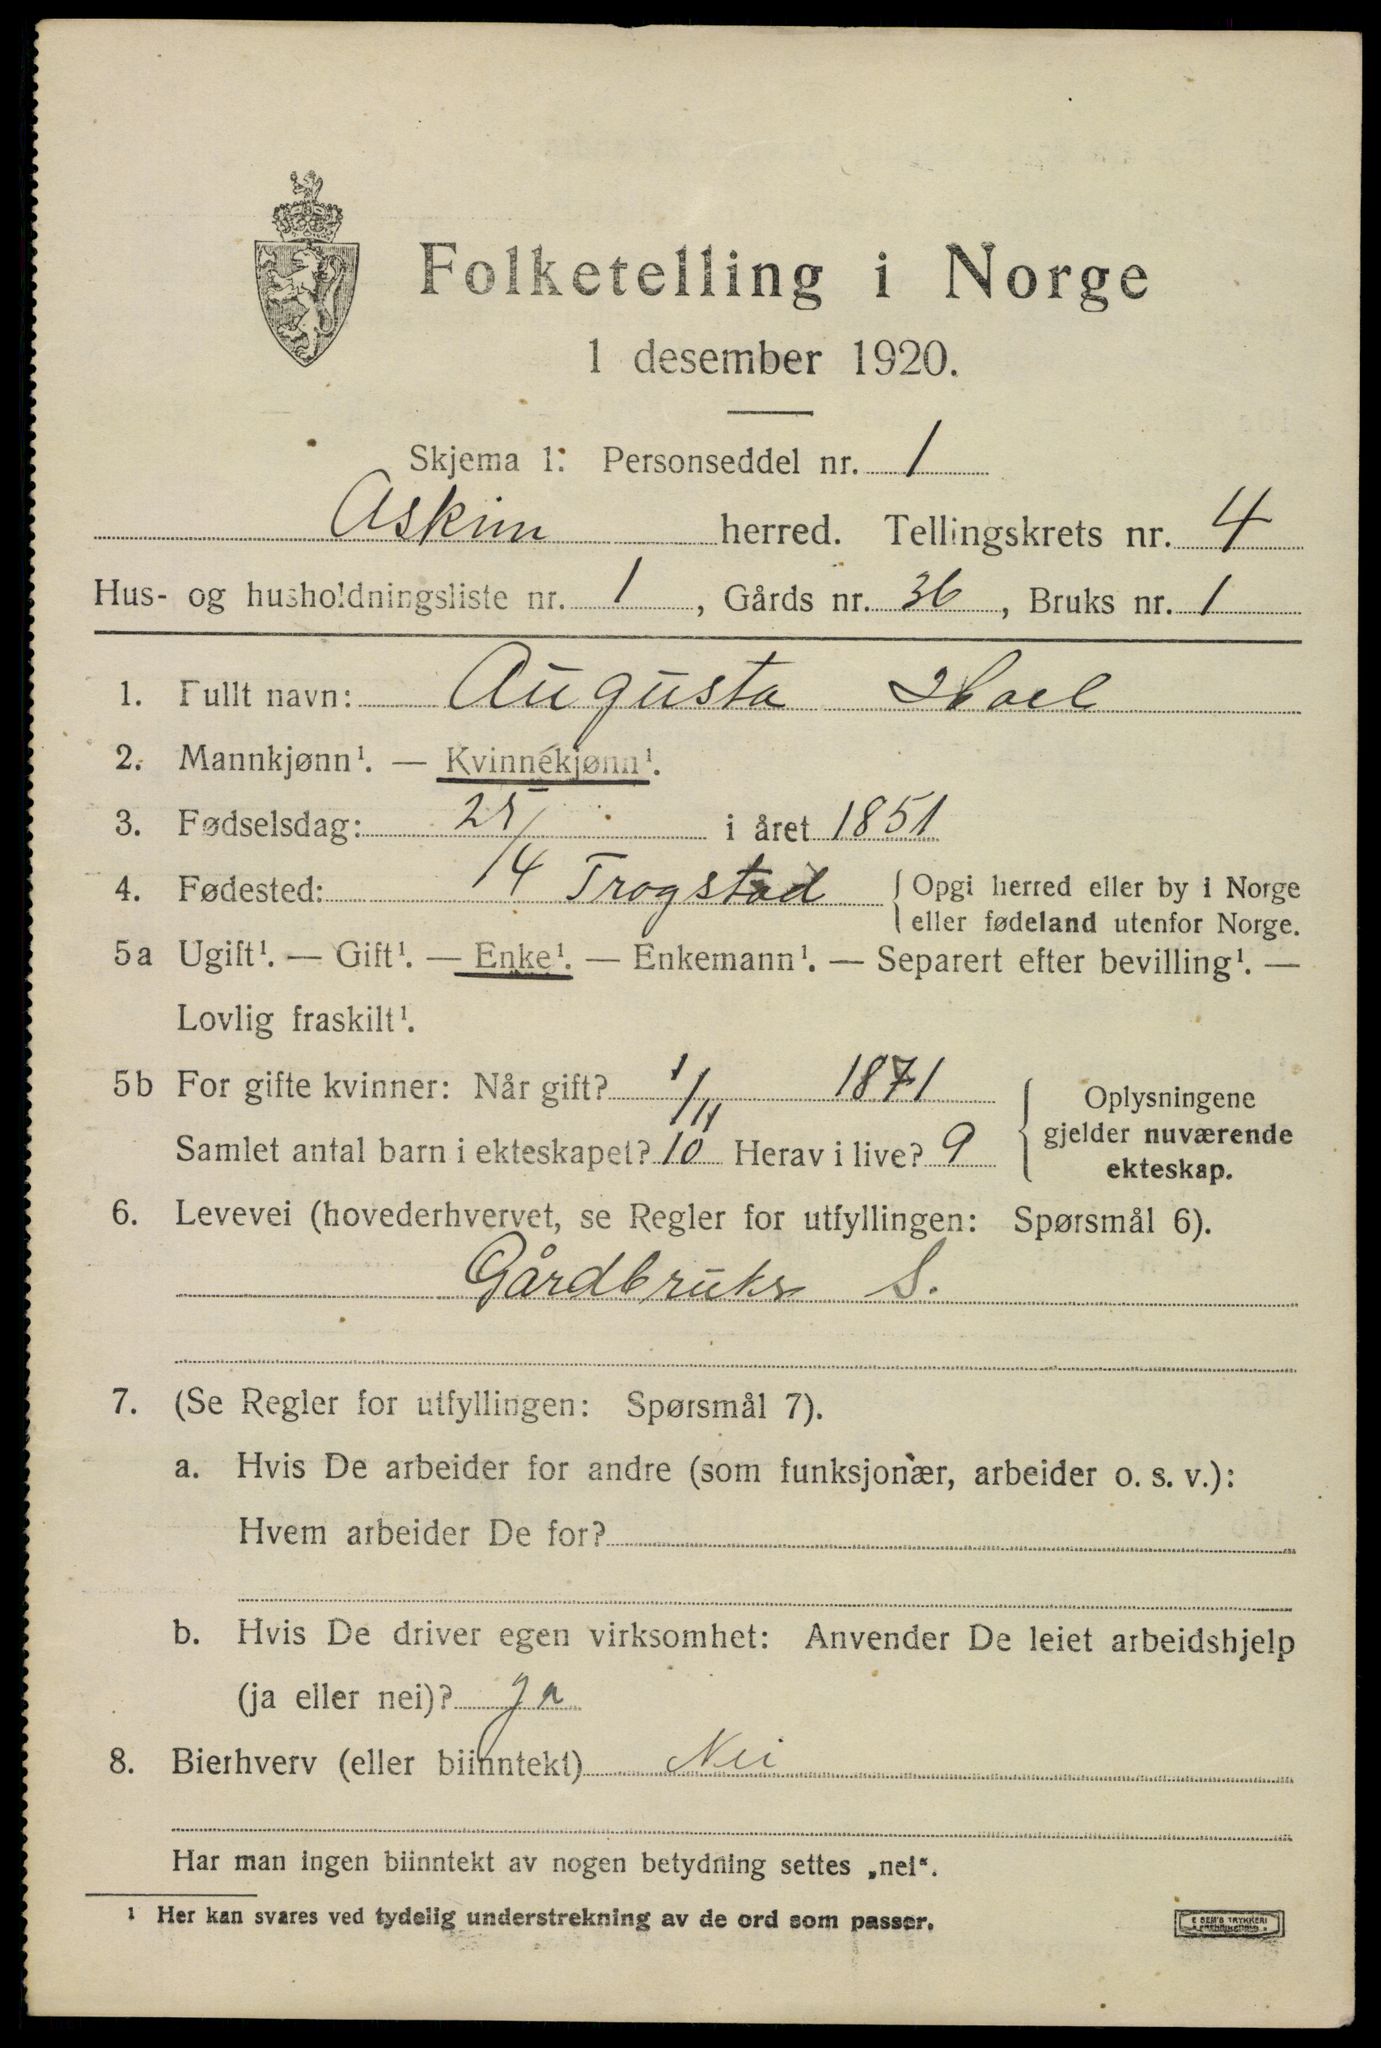 Folketelling i Norge
1 desember 1920.
Skjema 1: Personseddel nr. 1
Askim herred. Tellingskrets nr. 4
Hus- og husholdningsliste nr. 1, Gårds nr. 36, Bruks nr. 1
1. Fullt navn: Augusta Hoel
2. Mannkjønn¹. — Kvinnekjønn¹.
3. Fødselsdag: 25/4 i året 1851
4. Fødested: Trogstad { Opgi herred eller by i Norge
eller fødeland utenfor Norge.
5a Ugift¹. — Gift¹. — Enke¹. — Enkemann¹. — Separert efter bevilling¹. —
Lovlig fraskilt¹.
5b For gifte kvinner: Når gift? 1/11 1871
Samlet antal barn i ekteskapet? 10 Herav i live? 9
{ Oplysningene
gjelder nuværende
ekteskap.
6. Levevei (hovederhvervet, se Regler for utfyllingen: Spørsmål 6).
Gårdbruks S.
7. (Se Regler for utfyllingen: Spørsmål 7).
a. Hvis De arbeider for andre (som funksjonær, arbeider o. s. v.):
Hvem arbeider De for?
b. Hvis De driver egen virksomhet: Anvender De leiet arbeidshjelp
(ja eller nei)? Ja
8. Bierhverv (eller biinntekt) Nei
Har man ingen biinntekt av nogen betydning settes „nei“.
¹ Her kan svares ved tydelig understrekning av de ord som passer.
E SEM'S TRYKKERI